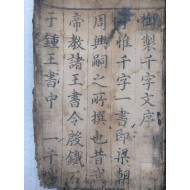 御製千字文序
惟千字一書即梁朝
周興嗣之所撰也昔武
帝教諸王書令殷鐵
于鍾王書中一千